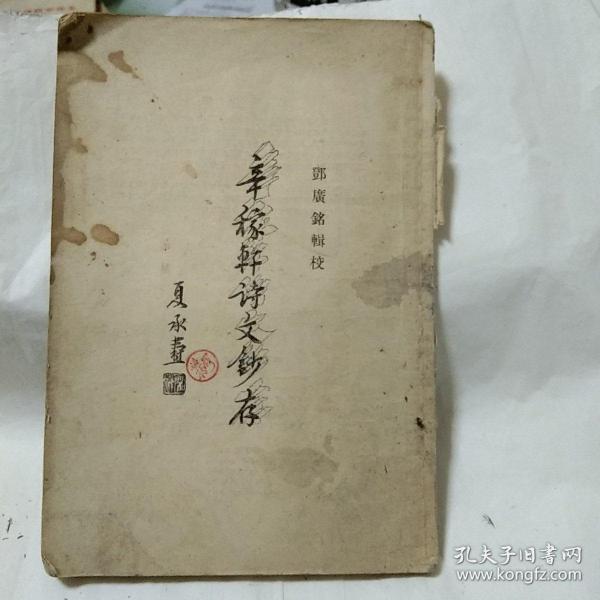 鄧廣銘輯校
辛稼軒詩文鈔存
夏承燾
孔夫子旧书网
www.kongfz.com